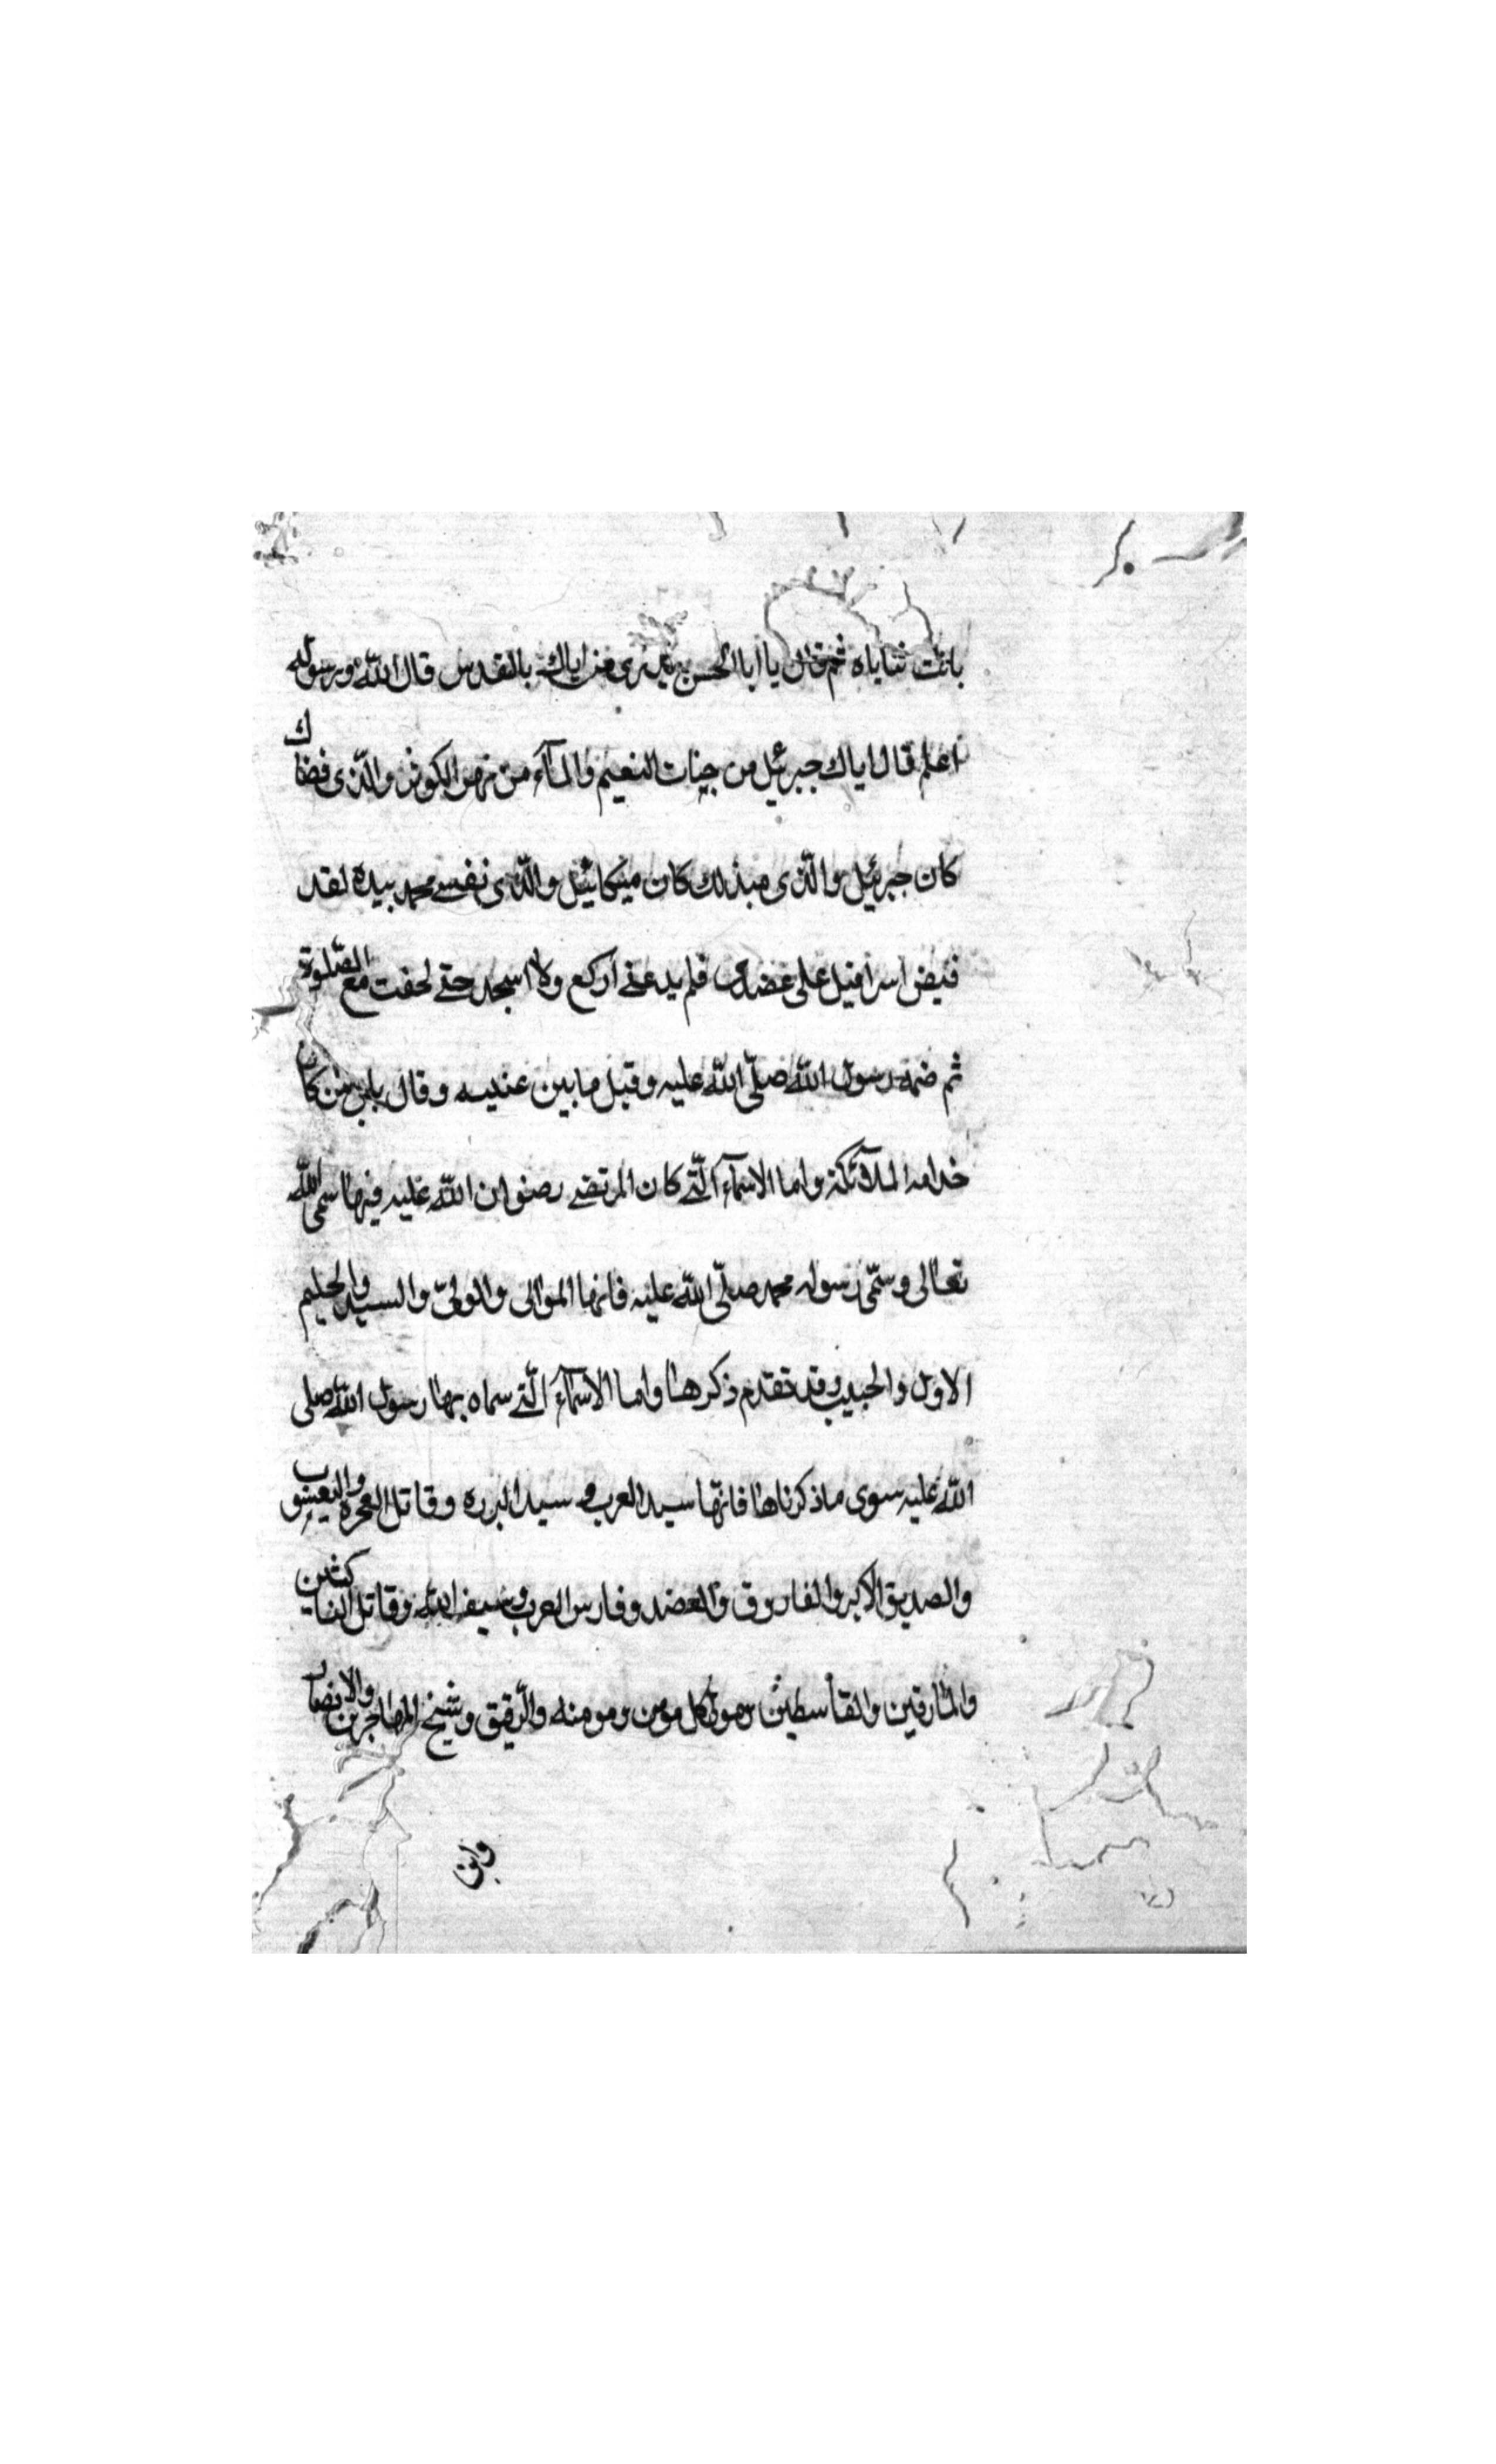 بانت ثناياه ثم قال يا ابا الحسن تدرى من اياك بالقدس قال الله ورسوله
اعلم قال اياك جبرئيل من جنات النعيم والمآء من نهر الكوثر والذى فضاك
كان جبرئيل والذى منذلك كان ميكائيل والذى نفس محمد بيده لقد
قبض اسرافيل على عضدى فلم يدعنى اركع ولا اسجد حتى لحقت مع الصلوة
ثم ضمه رسول الله صلى الله عليه وقبل ما بين عينيه وقال بابى من كان
خدامه الملآئكة واما الاسمآء التى كان المرتضى رضوان الله عليه فيها سمى الله
تعالى وسمى رسوله محمد صلى الله عليه فانها الموالى والولى والسيد والحليم
الاول والحبيب وقد تقدم ذكرها واما الاسمآء التى سماه بها رسول الله صلى
الله عليه سوى ما ذكرناها فانها سيد العرب وسيد البرره وقاتل الفجرة واليعسوب
والصديق الاكبر والفاروق والعضد وفارس العرب وسيف الله وقاتل الناكثين
والمارقين والقاسطين ومولى كل مومن ومومنه والرفيق وشيخ المهاجرين والانصار
وابن